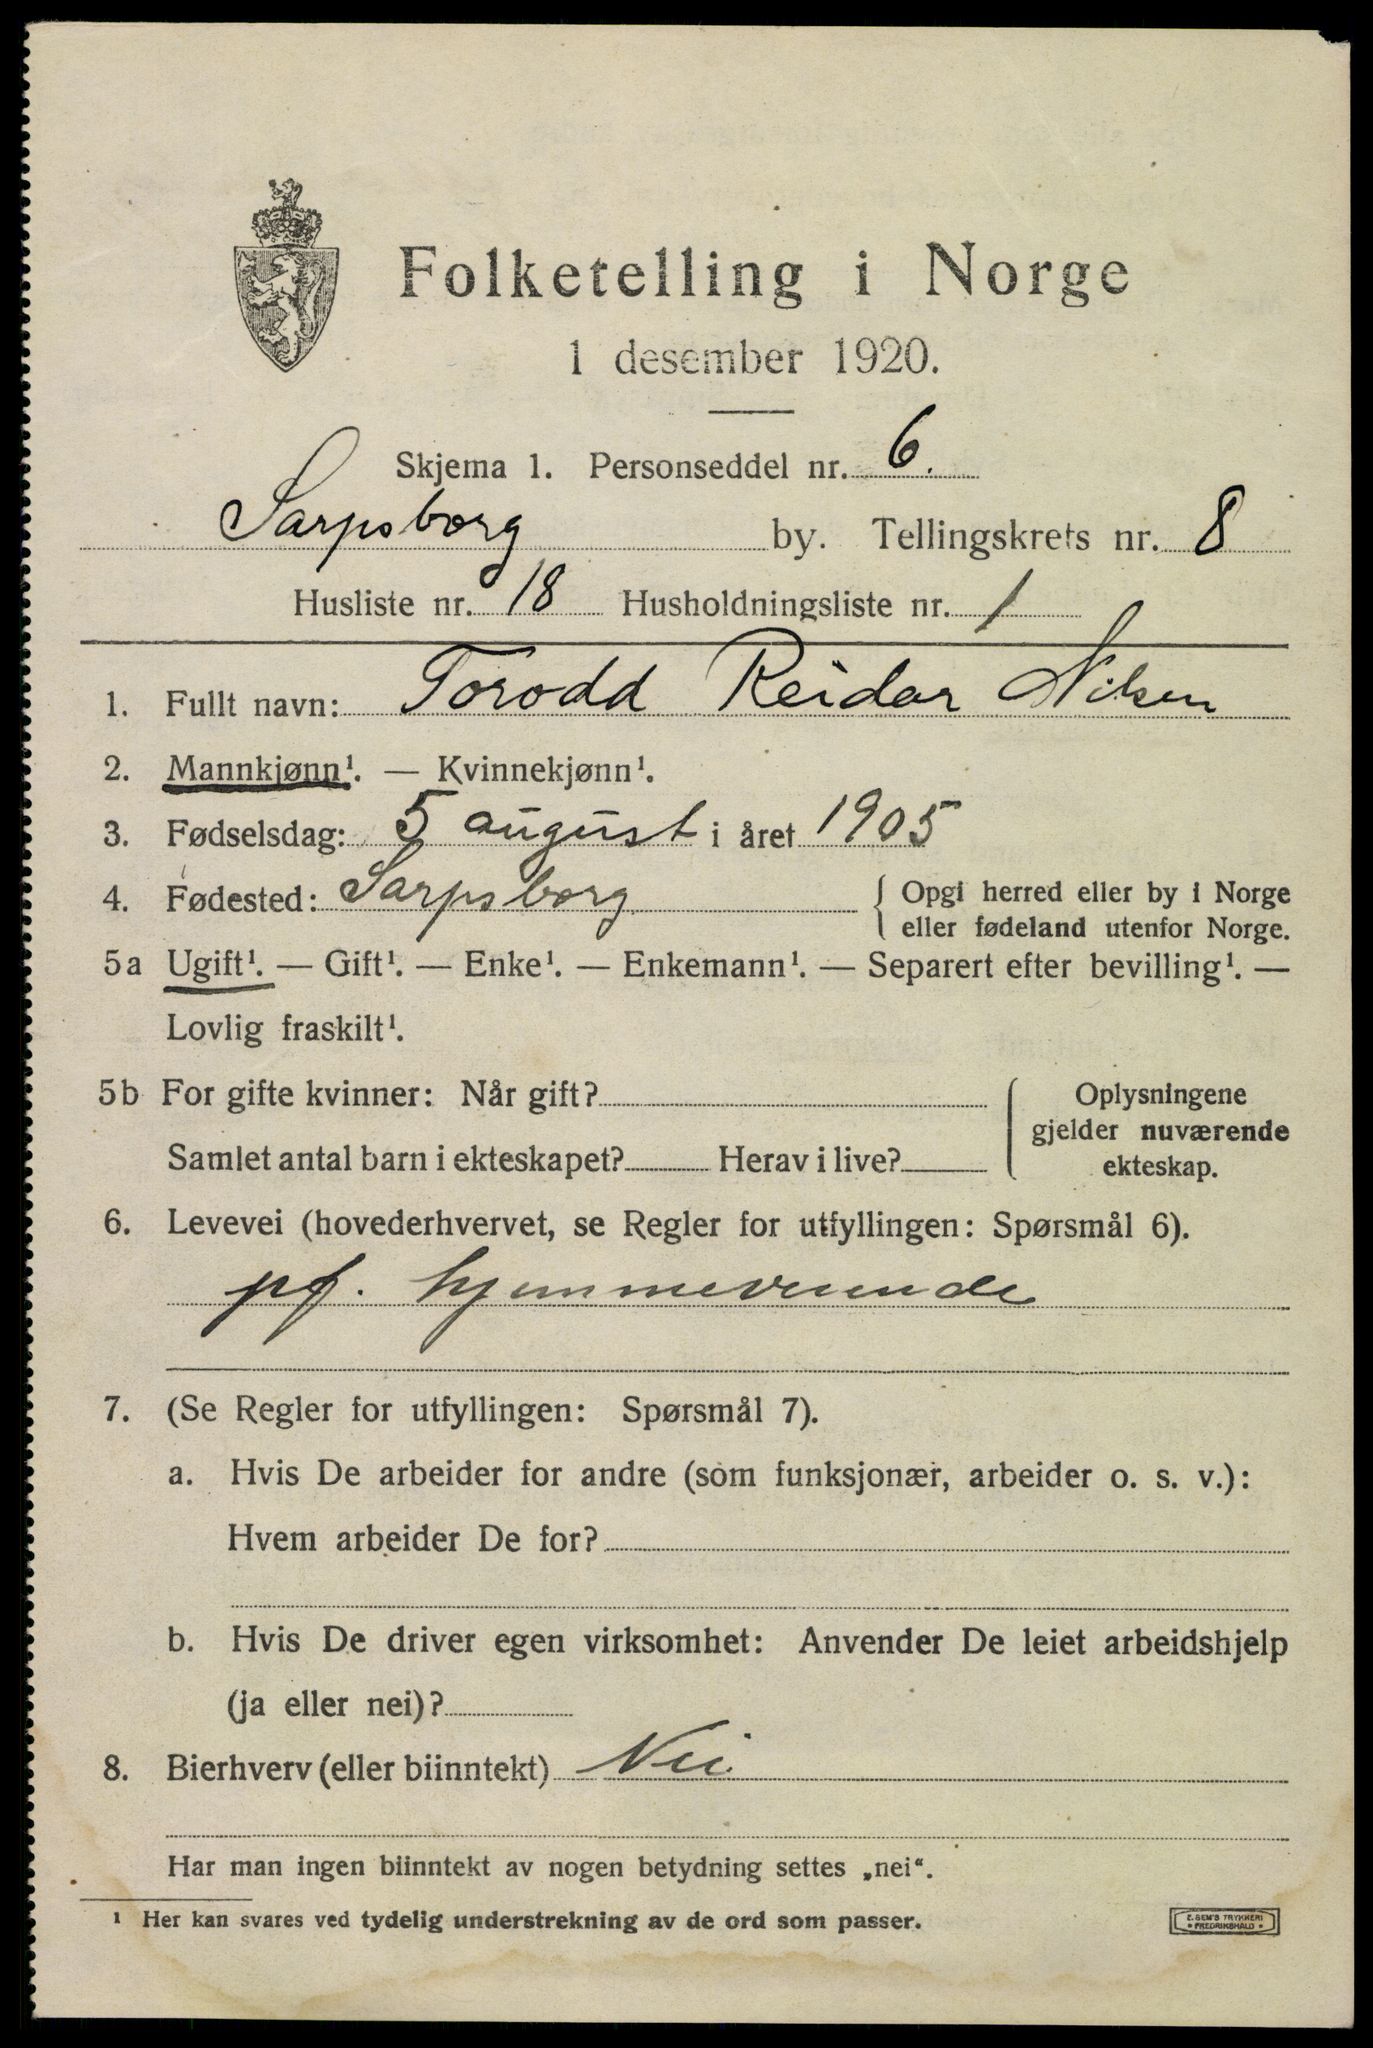 Folketelling i Norge
1 desember 1920.
Skjema 1. Personseddel nr. 6.
Sarpsborg by. Tellingskrets nr. 8
Husliste nr. 18 Husholdningsliste nr. 1
1. Fullt navn: Torodd Reidar Nilsen
2. Mannkjønn¹. — Kvinnekjønn¹.
3. Fødselsdag: 5 august i året 1905
4. Fødested: Sarpsborg { Opgi herred eller by i Norge
eller fødeland utenfor Norge.
5a Ugift¹. — Gift¹. — Enke¹. — Enkemann¹. — Separert efter bevilling¹. —
Lovlig fraskilt¹.
5b For gifte kvinner: Når gift? Oplysningene
gjelder nuværende
Samlet antal barn i ekteskapet? Herav i live? ekteskap.
6. Levevei (hovederhvervet, se Regler for utfyllingen: Spørsmål 6).
pf. hjemmeværende
7. (Se Regler for utfyllingen: Spørsmål 7).
a. Hvis De arbeider for andre (som funksjonær, arbeider o. s. v.):
Hvem arbeider De for?
b. Hvis De driver egen virksomhet: Anvender De leiet arbeidshjelp
(ja eller nei)?
8. Bierhverv (eller biinntekt) Nei
Har man ingen biinntekt av nogen betydning settes „nei“.
¹ Her kan svares ved tydelig understrekning av de ord som passer.
E. SEM'S TRYKKERI
• FREDRIKSHALD •